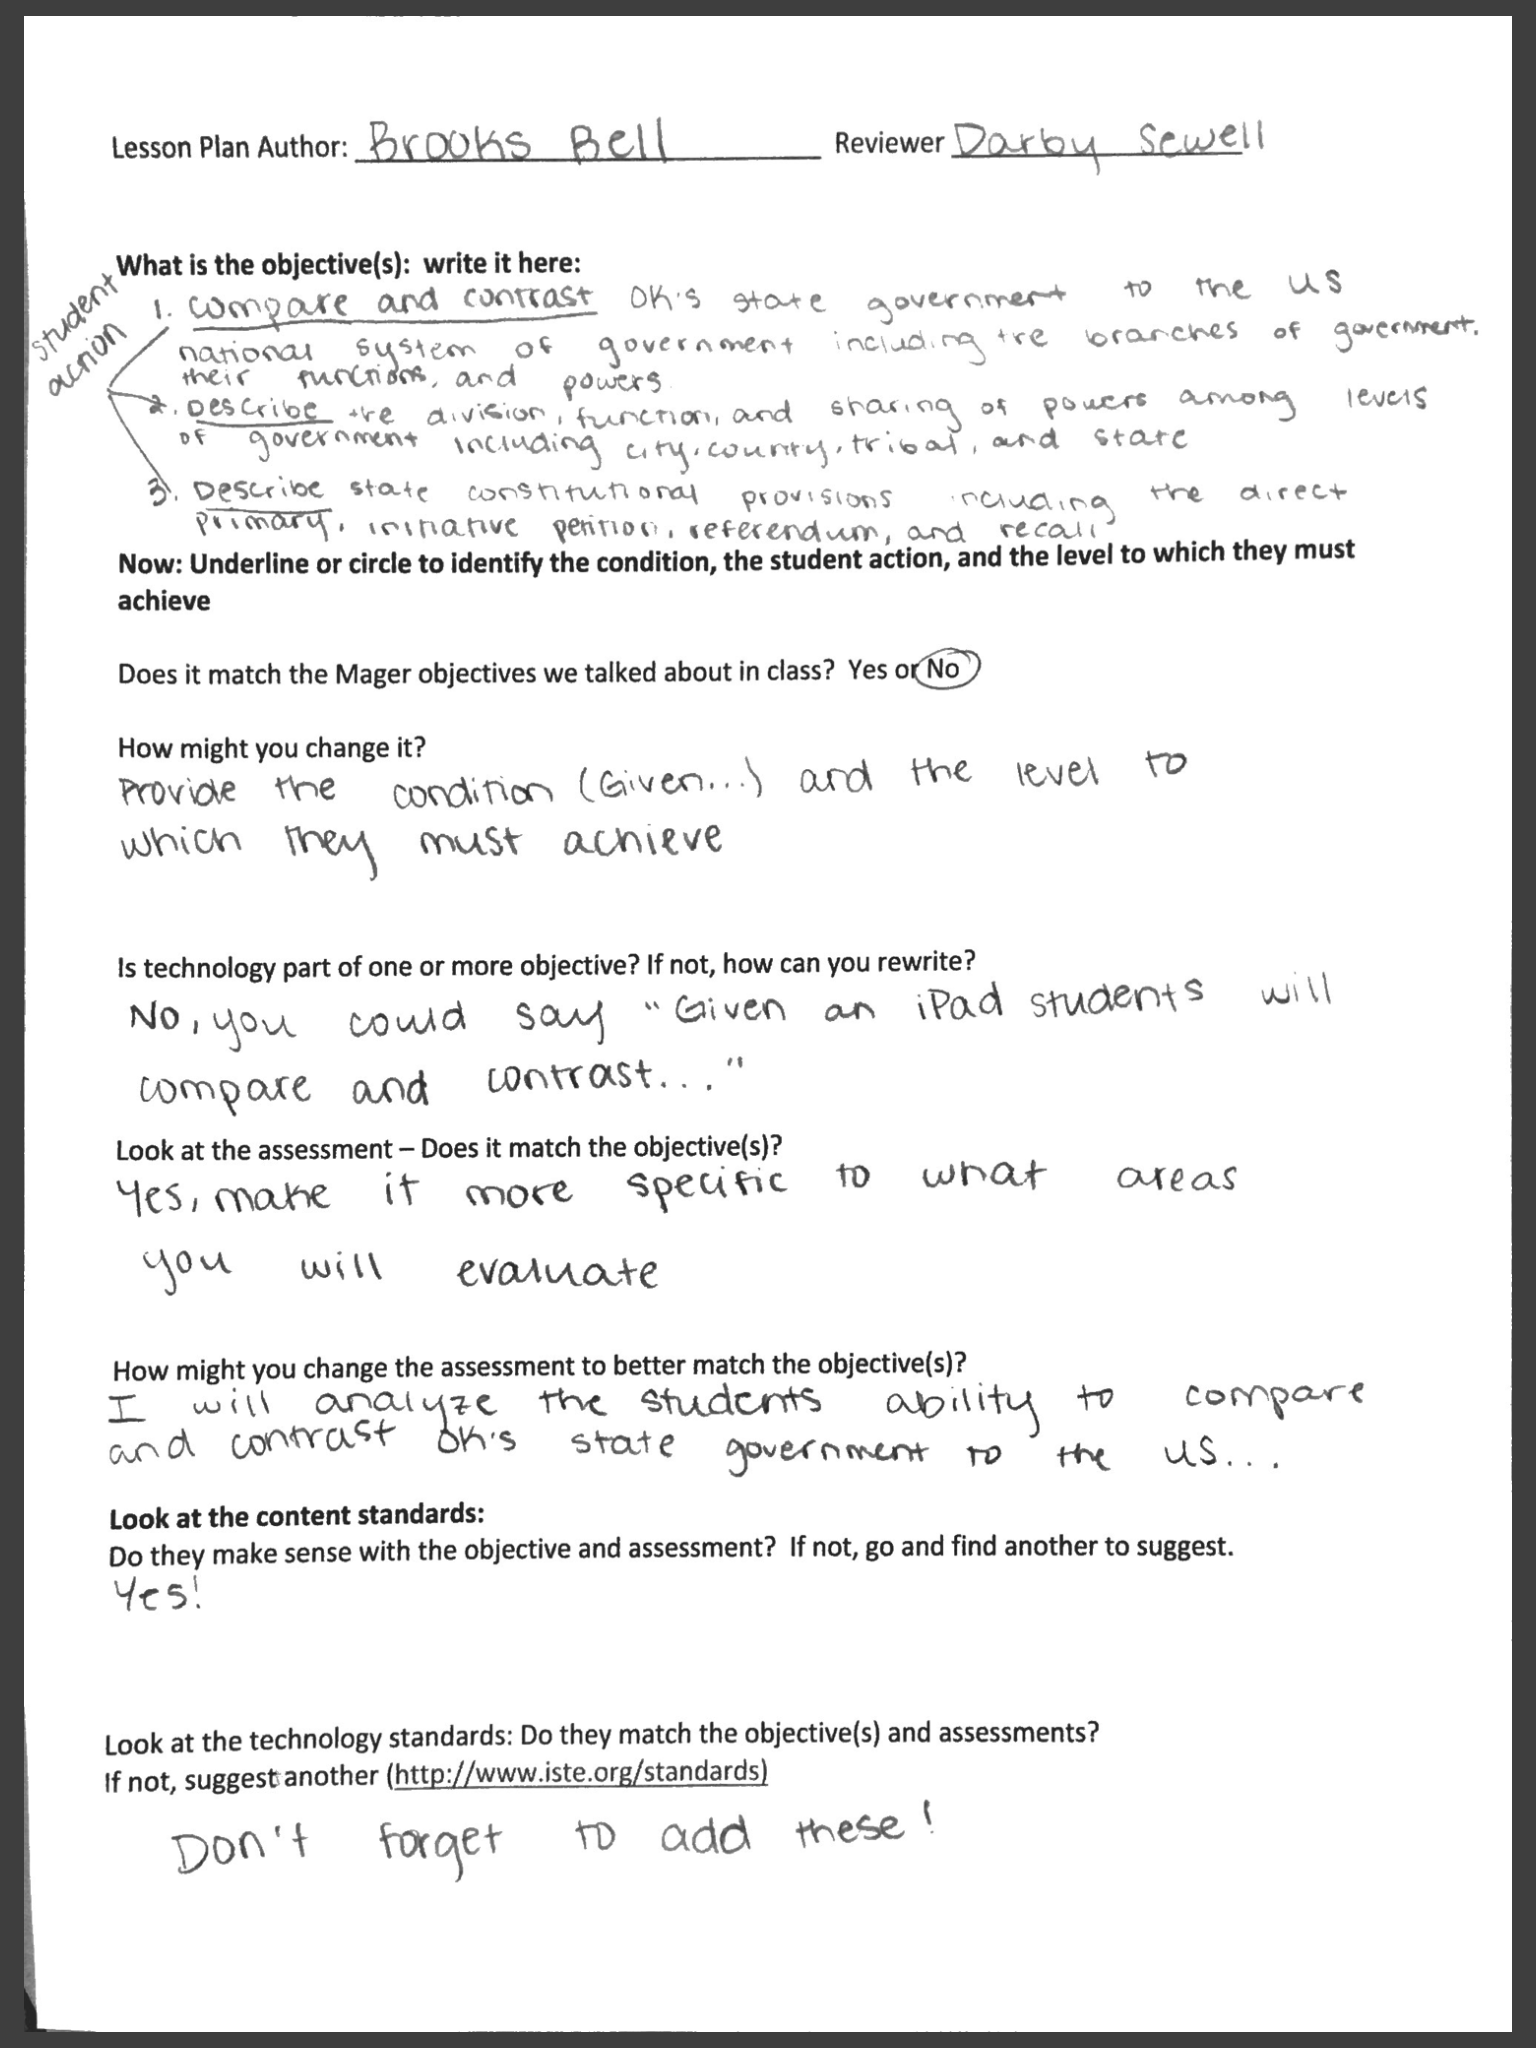 Lesson Plan Author: Brooks Bell Reviewer Darby Sewell
What is the objective(s): write it here:
student
action
1. compare and contrast OK's state government to the US
national system of government including the branches of government.
their functions, and powers
2. Describe the division, function, and sharing of powers among levels
of government including city, county, tribal, and state
3. Describe state constitutional provisions including the direct
primary, initiative petition, referendum, and recall
Now: Underline or circle to identify the condition, the student action, and the level to which they must
achieve
Does it match the Mager objectives we talked about in class? Yes or No
How might you change it?
Provide the condition (Given...) and the level to
which they must achieve
Is technology part of one or more objective? If not, how can you rewrite?
No, you could say "Given an iPad students will
compare and contrast..."
Look at the assessment – Does it match the objective(s)?
Yes, make it more specific to what areas
you will evaluate
How might you change the assessment to better match the objective(s)?
I will analyze the students ability to compare
and contrast OK's state government to the US...
Look at the content standards:
Do they make sense with the objective and assessment? If not, go and find another to suggest.
Yes!
Look at the technology standards: Do they match the objective(s) and assessments?
If not, suggest another (http://www.iste.org/standards)
Don't forget to add these!